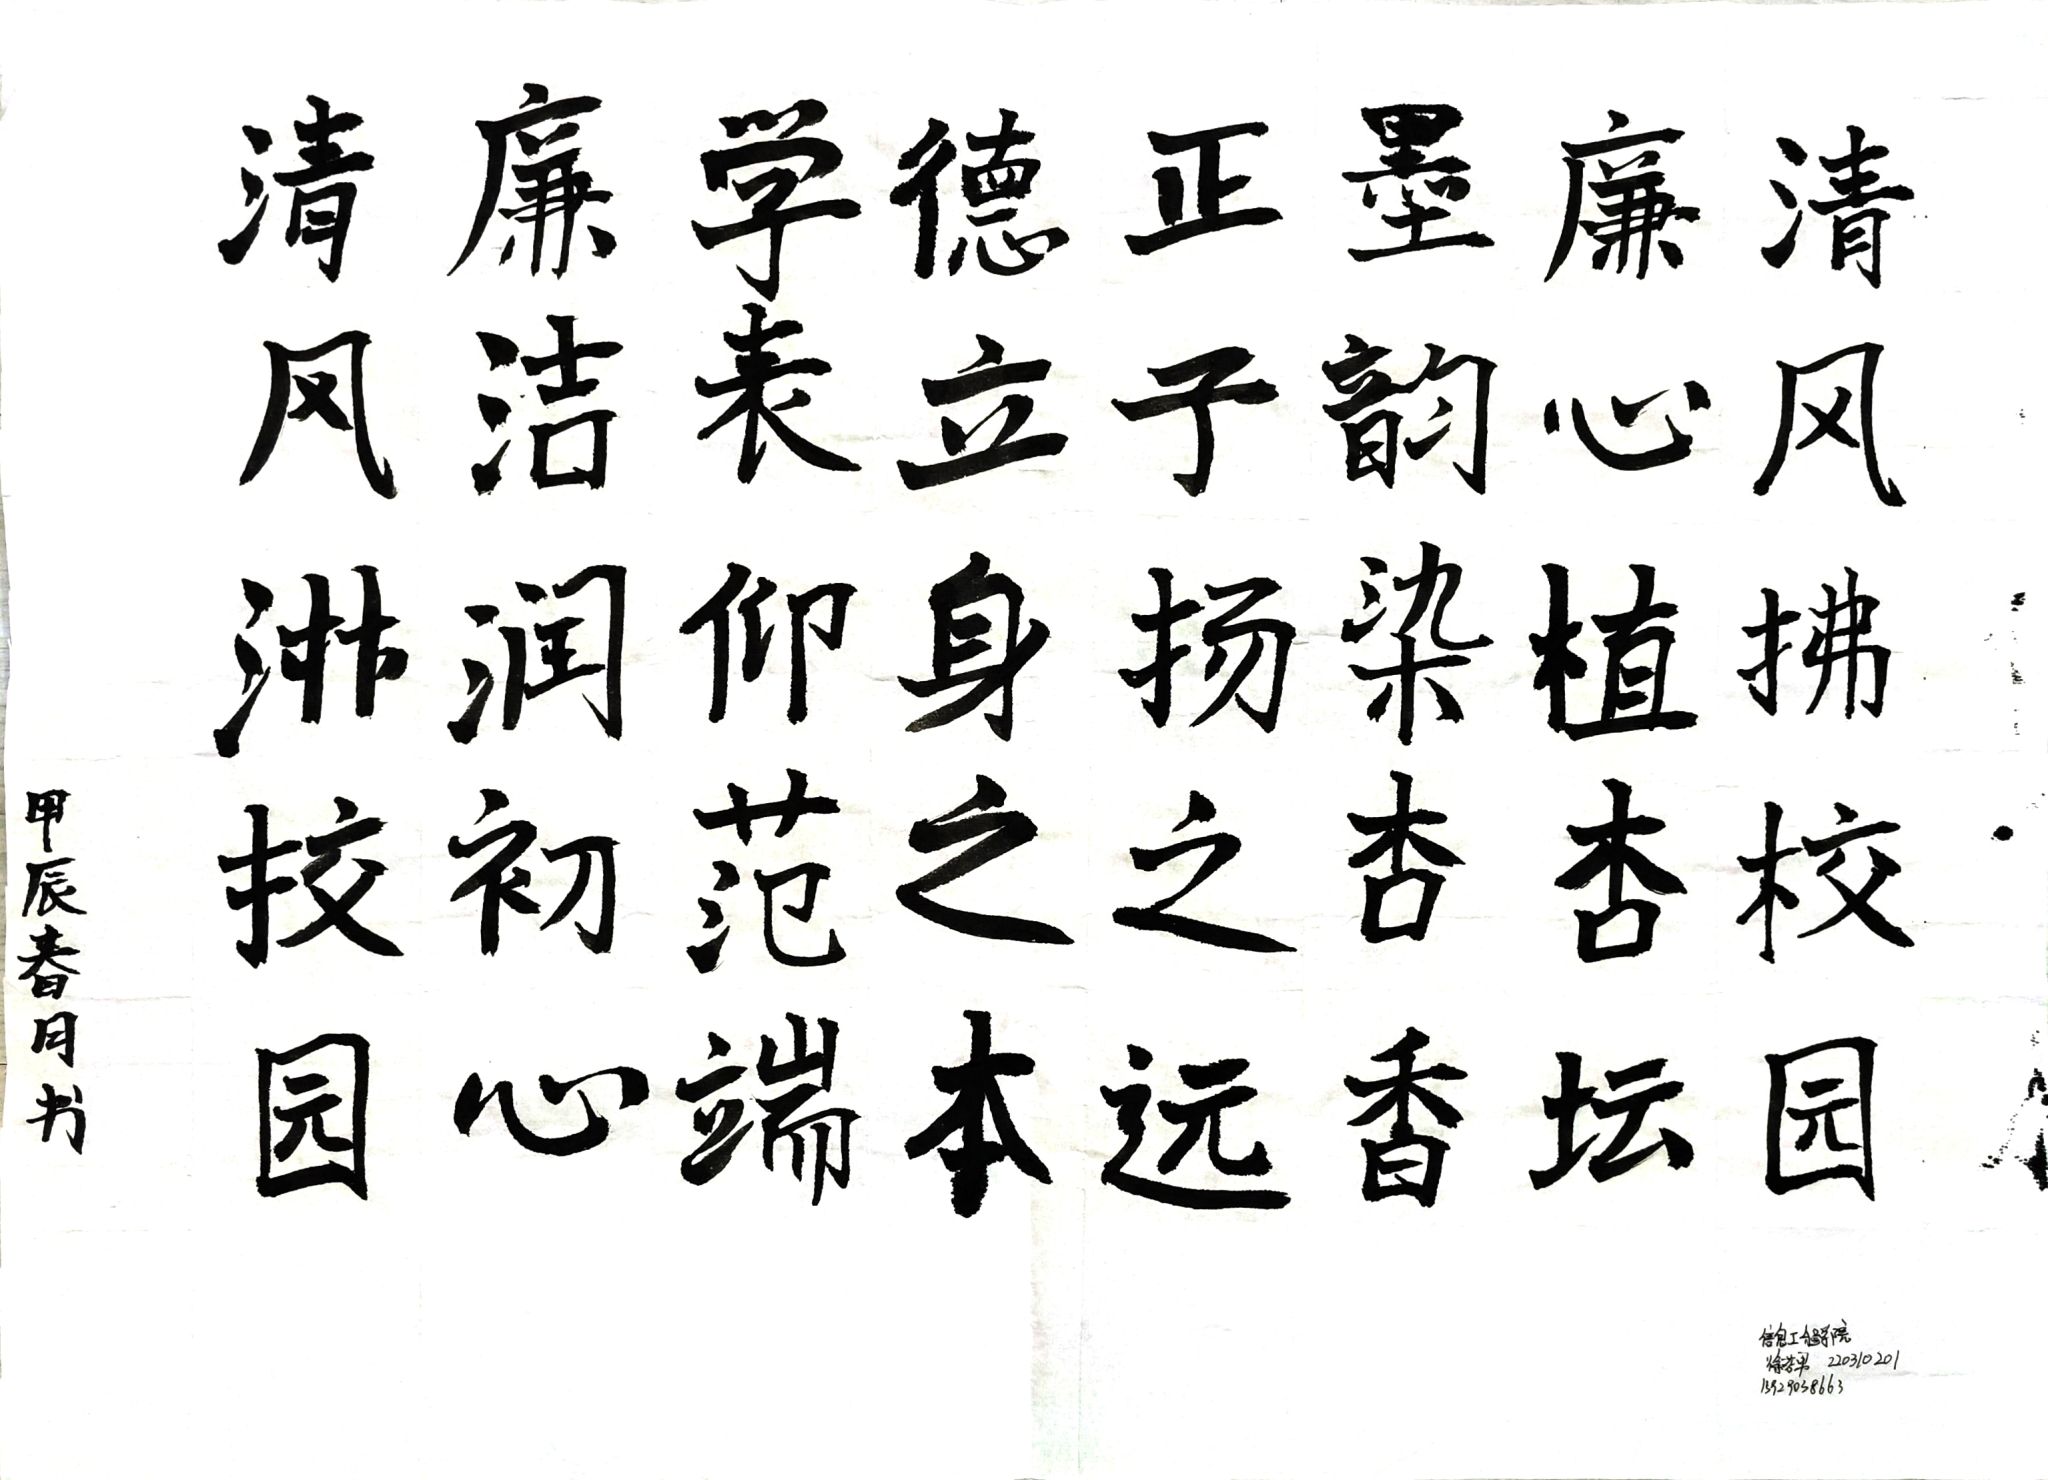 清风拂校园
廉心植杏坛
墨韵染杏香
正于扬之远
德立身之本
学表仰范端
廉洁润初心
清风淋校园
甲辰春月书
信息工程学院
220310201
13929038663